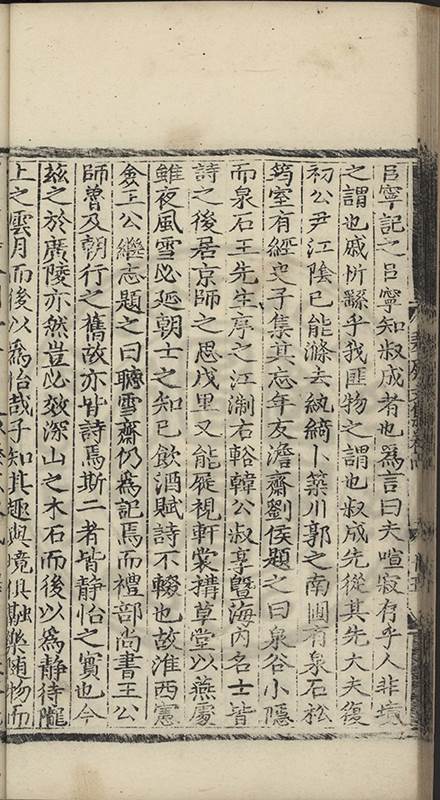 呂寧記之呂寧知叔成者也爲言曰夫喧寂存乎人非境
之謂也戚忻繇乎我匪物之謂也叔成先從其先大夫復
初公尹江陰已能滌去紈綺卜築川郭之南圃有泉石松
筠室有經史子集其忘年友澹齋劉侯題之曰泉谷小隱
而泉石王先生序之江淛右轄韓公叔享曁海內名士皆
詩之後居京師之思戊里又能屣視軒裳搆草堂以燕處
雖夜風雪必延朝士之知已飲酒賦詩不輟也故淮西憲
僉王公繼志題之曰聽雪齋仍爲記焉而禮部尚書王公
師魯及朝行之舊故亦皆詩焉斯二者皆静怡之實也今
玆之於廣陵亦然豈必效深山之木石而後以爲静待隴
上之雲月而後以爲怡哉子知其趣與境俱融樂随物而